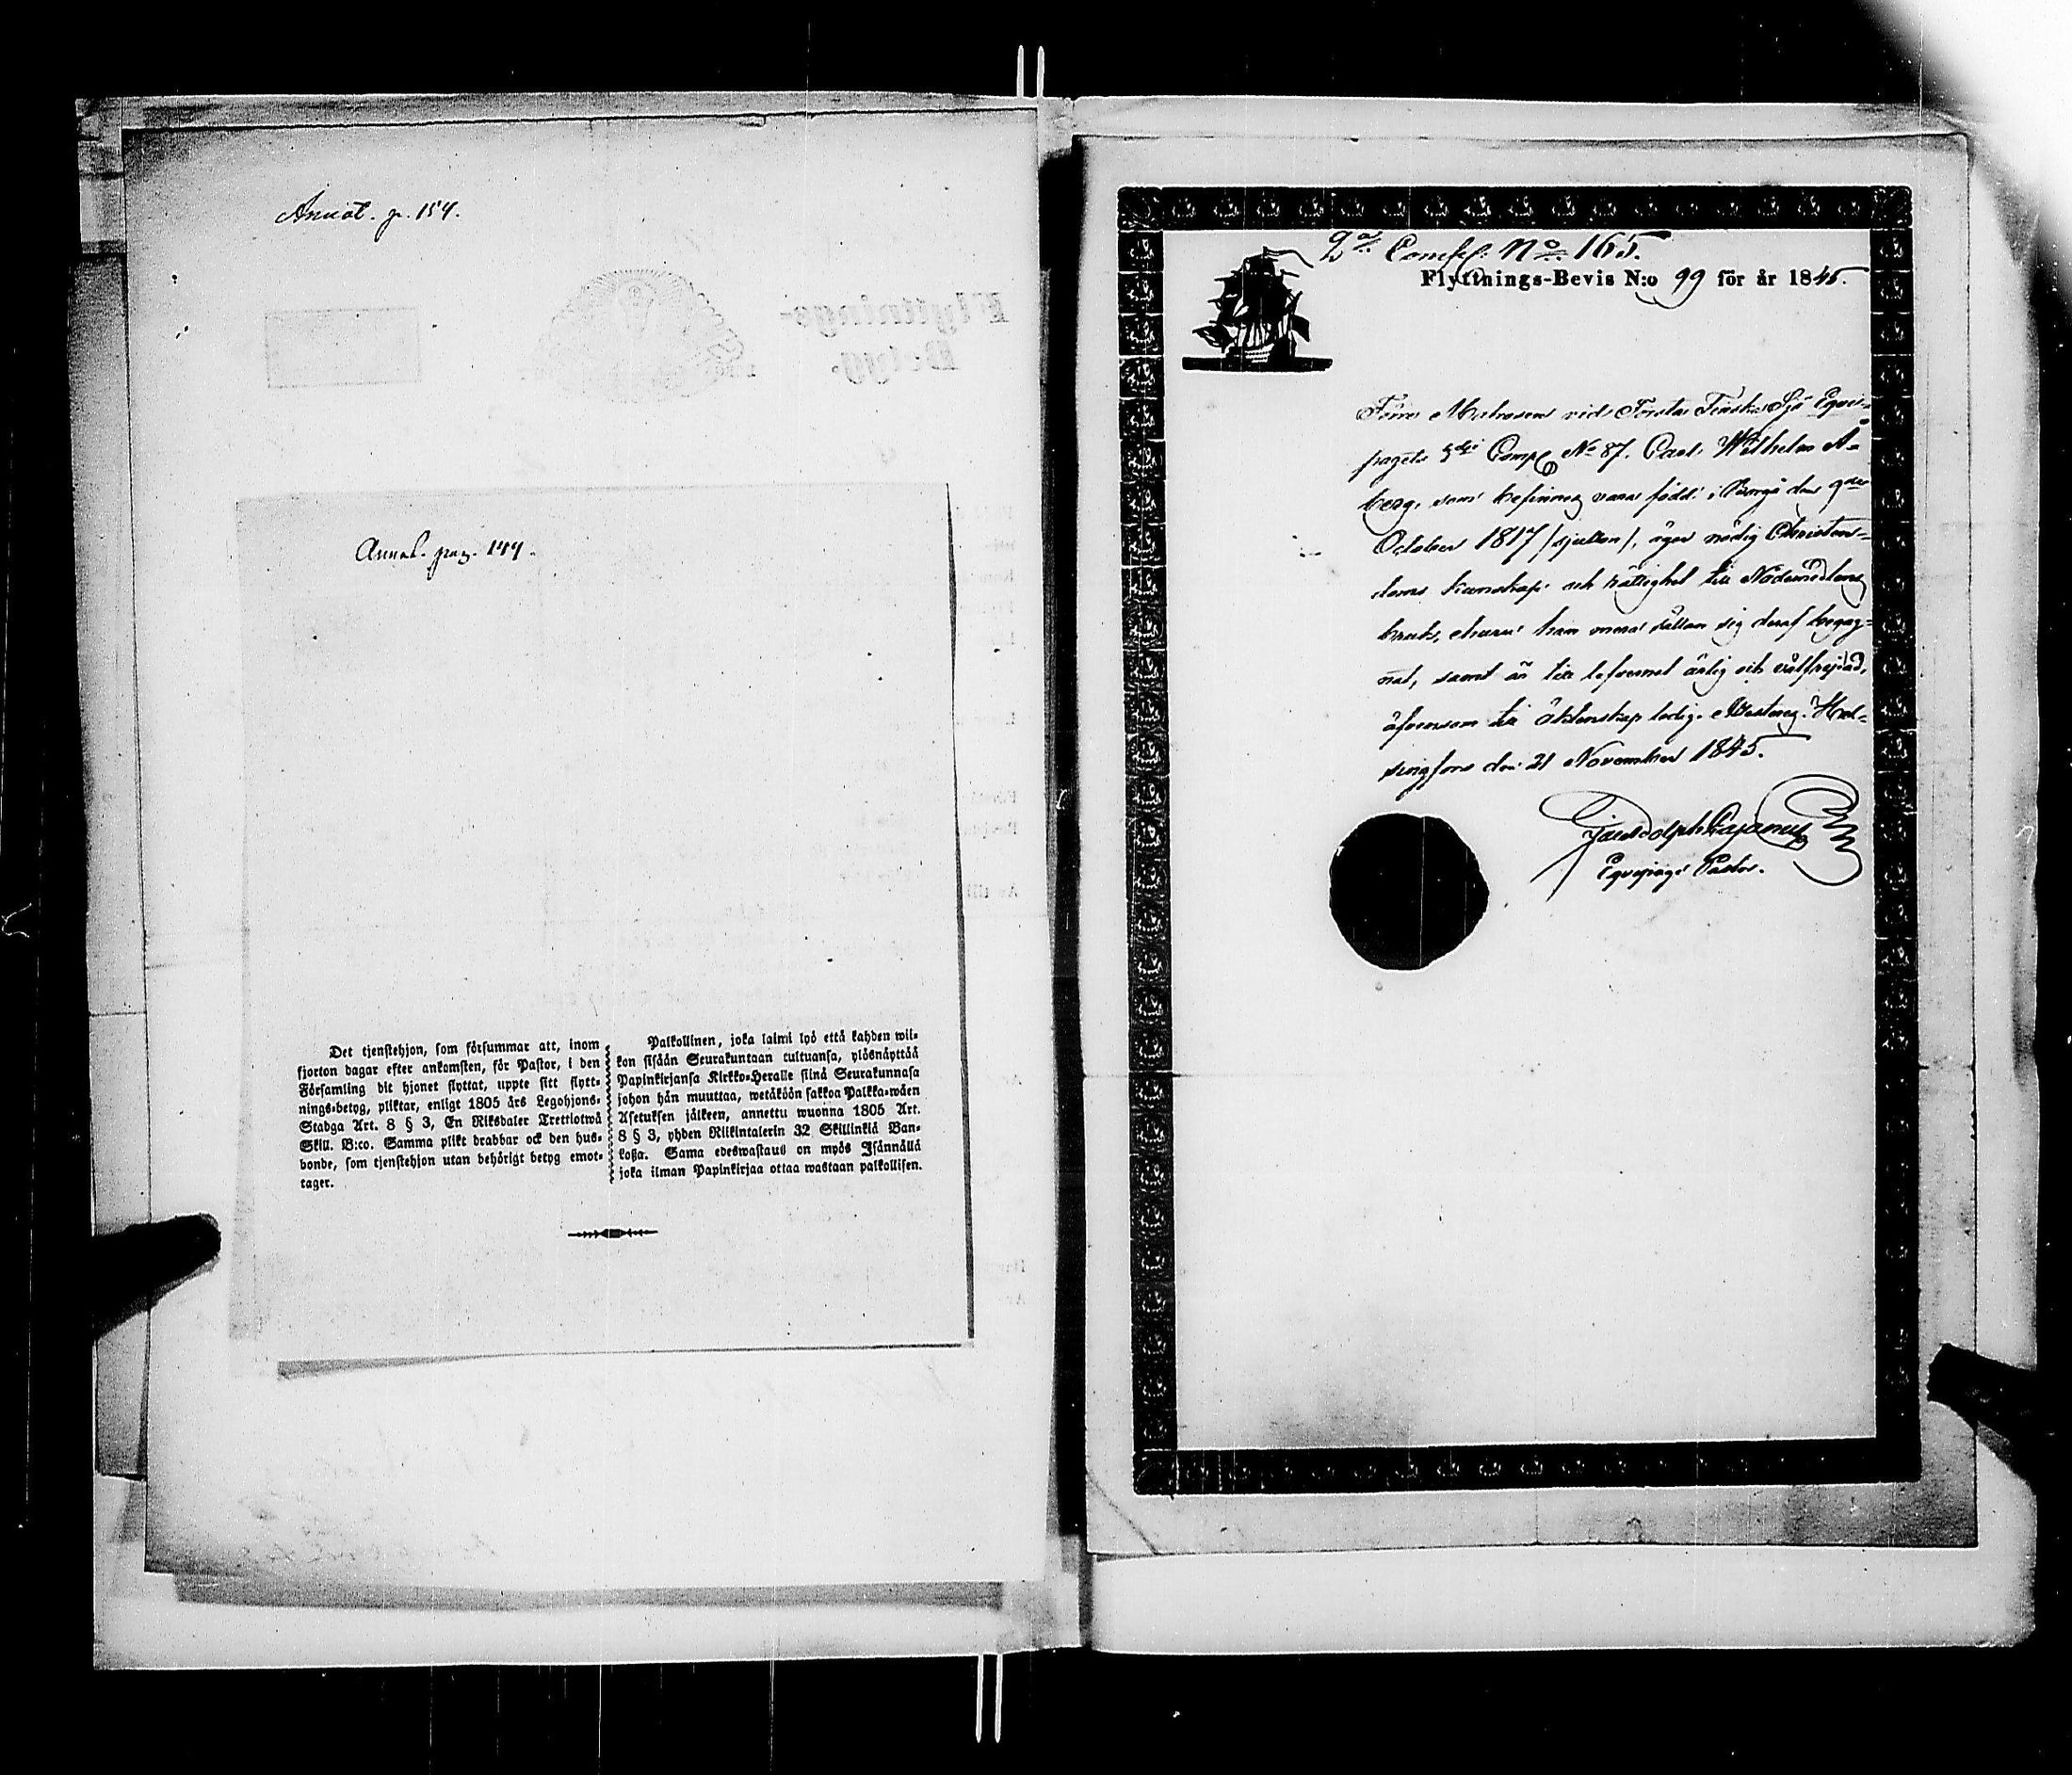 Annot. p. 154.
Annot. pag. 154.
Det tjenstehjon, som försummar att, inom
fjorton dagar efter ankomsten, för Pastor, i den
Församling dit hjonet flyttat, uppte sitt flytt-
nings-betyg, pliktar, enligt 1805 års Legohjons-
Stadga Art. 8 § 3, En Riksdaler Trettiotwå
Skill. B:co. Samma plikt drabbar ock den hus-
bonde, som tjenstehjon utan behörigt betyg emot-
tager.
Palkollinen, joka laimi lyö että kahden wii-
kon sisään Seurakuntaan tultuansa, ylösnäyttää
Papinkirjansa Kirkko-Heralle siinä Seurakunnasa
johon hän muuttaa, wetäköön sakkoa Palkka-wäen
Asetuksen jälkeen, annettu wuonna 1805 Art.
8 § 3, yhden Riikintalerin 32 Skillinkiä Ban-
koßa. Sama edeswastaus on myös Isännällä
joka ilman Papinkirjaa ottaa wastaan palkollisen.
2dra Comp. No. 165.
Flyttnings-Bevis N:o 99 för år 1845.
Förre Matrosen vid Första Finska Sjö Eqvi-
pagets 3dje Comp No 87. Carl Wilhelm Å-
berg, som befinnes vara född i Borgå den 9de
October 1817 /sjutton/, äger nödig Christen-
doms kunskap och rättighet till Nådemedlens
bruk, ehuru han mera sällan sig deraf begag-
nat, samt är till lefvernet ärlig och välfrejdad,
äfvensom till äktenskap ledig. Attesteras. Hel-
singfors den 21 November 1845.
Eqvipage Pastor.